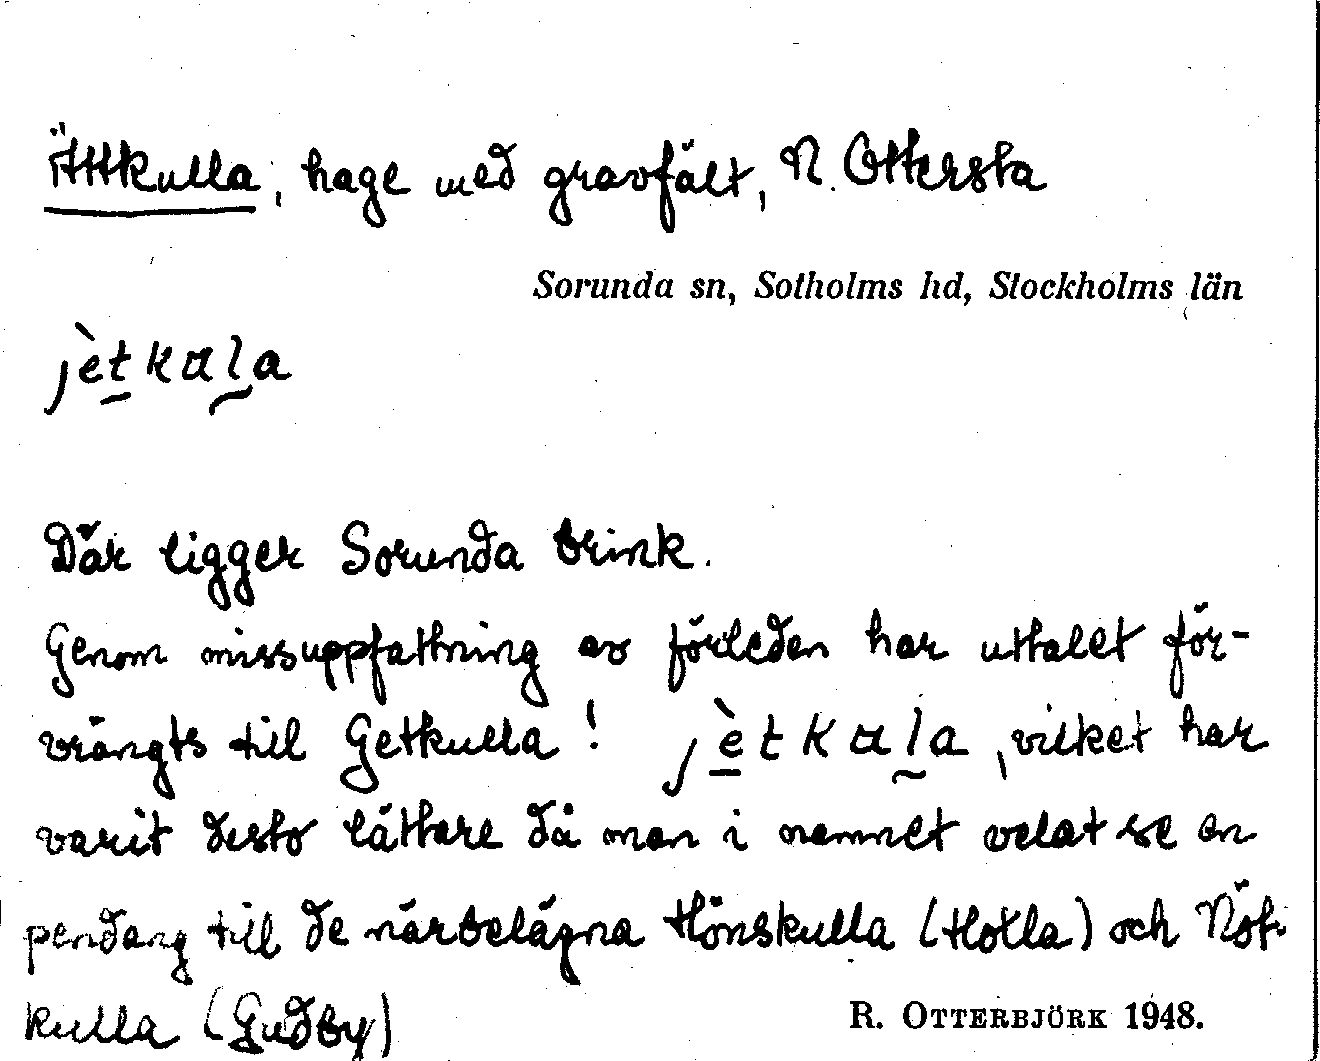 Ättkulla, hage med gravfält, N. Ottersta
Sorunda sn, Sotholms hd, Stockholms län
jètkula
Där ligger Sorunda brink.
Genom missuppfattning av förleden har uttalet för-
vrängts till Getkulla! jètkula, vilket har
varit desto lättare då man i namnet velat se en
pendang till de närbelägna Hönskulla (Hotla) och Nöt-
kulla (Gudby)
R. OTTERBJÖRK 1948.